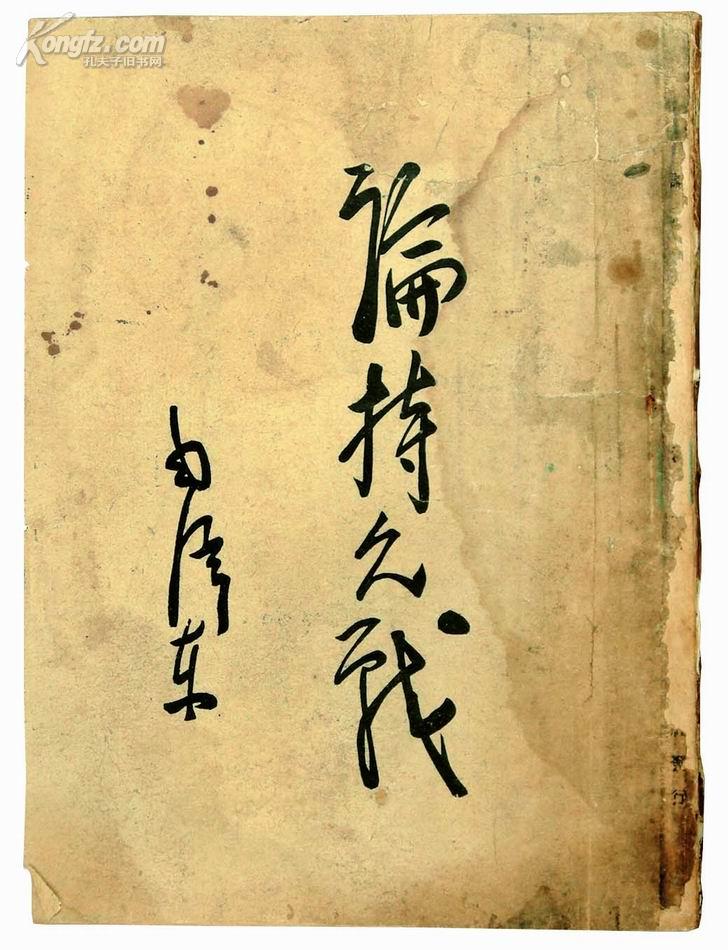 Kongfz.com
孔夫子旧书网
論持久戰
毛澤东
行